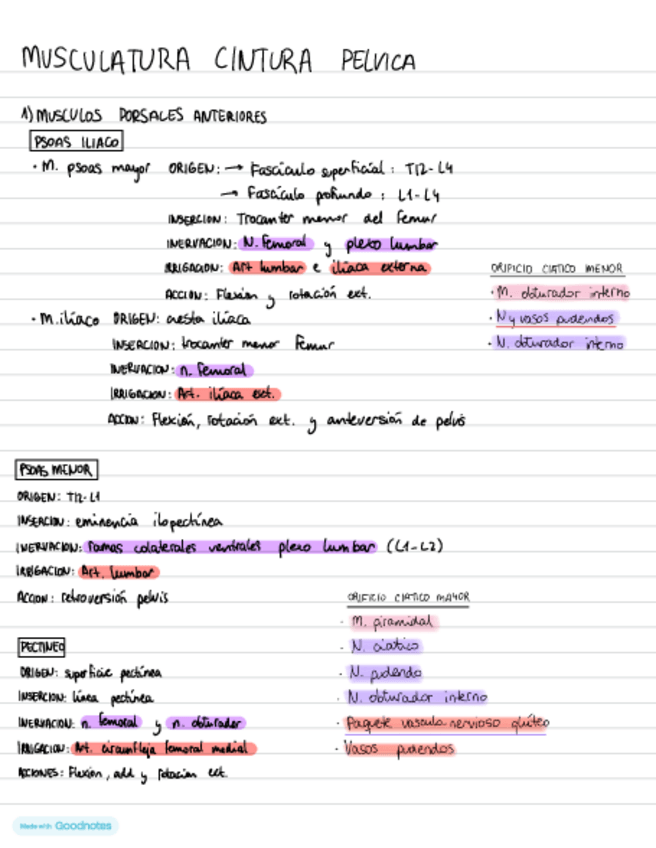 MUSCULATURA CINTURA PELVICA
1) MUSCULOS DORSALES ANTERIORES
PSOAS ILIACO
· M. psoas mayor ORIGEN: → Fascículo superficial: T12-L4
→ Fascículo profundo: L1-L4
INSERCION: Trocanter menor del Femur
INERVACION: N. Femoral y plexo lumbar
IRRIGACION: Art lumbar e iliaca externa
ACCION: Flexion y rotación ext.
· M. iliaco ORIGEN: cresta iliaca
INSERCION: trocanter menor Femur
INERVACION: n. Femoral
IRRIGACION: Art. iliaca ext.
ACCION: Flexión, rotación ext. y anteversión de pelvis
ORIFICIO CIATICO MENOR
· M. obturador interno
· N y vasos pudendos
· N. obturador interno
PSOAS MENOR
ORIGEN: T12-L1
INSERCION: eminencia ilopectínea
INERVACION: ramas colaterales ventrales plexo lumbar (L1-L2)
IRRIGACION: Art. lumbar
ACCION: retroversión pelvis
PECTINEO
ORIGEN: superficie pectínea
INSERCION: línea pectínea
INERVACION: n. femoral y n. obturador
IRRIGACION: Art. circunfleja femoral medial
ACCIONES: Flexion, add y rotacion ext.
ORIFICIO CIATICO MAYOR
· M. piramidal
· N. ciatico
· N. pudendo
· N. obturador interno
· Paquete vasculo nervioso glúteo
· Vasos pudendos
Made with Goodnotes